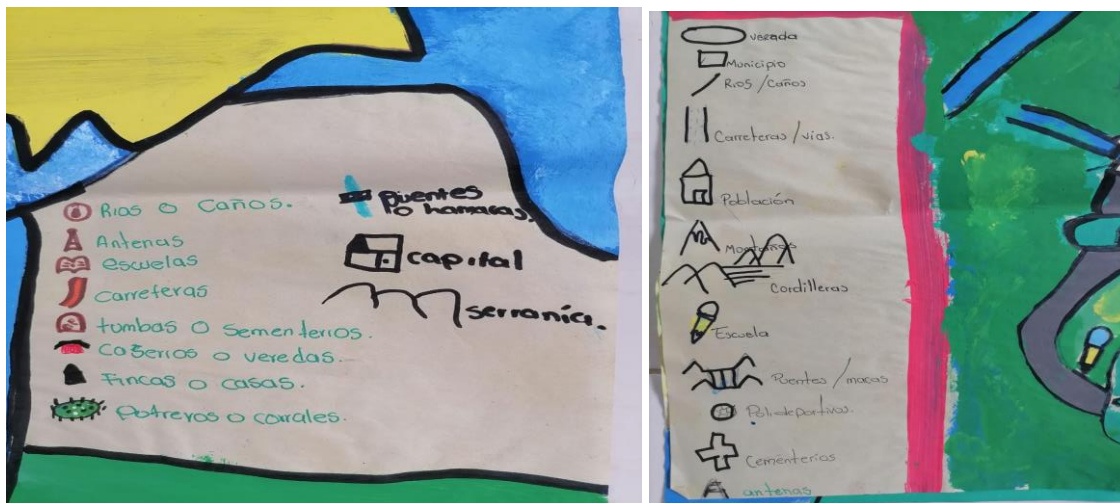 Rios o Caños.
Antenas
escuelas
Carreteras
tumbas o sementerios.
Caserios o veredas.
Fincas o casas.
Potreros o corrales.
püentes
o hamacas.
capital
serranía.
vereda
Municipio
Rios / Caños
Carreteras / vias.
Población
Montañas
Cordilleras
Escuela
Puentes / macas
Polideportivos.
Cementerios
antenas